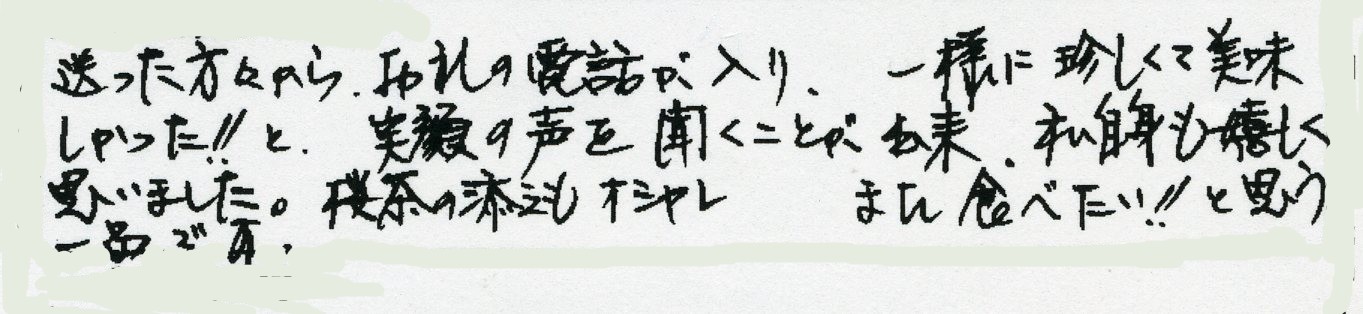 送った方々から、お礼の電話が入り、一様に珍しくて美味
しかった!!と、笑顔の声を聞くことが出来、私自身も嬉しく
思いました。桜茶の添えもオシャレ また食べたい!!と思う
一品です。